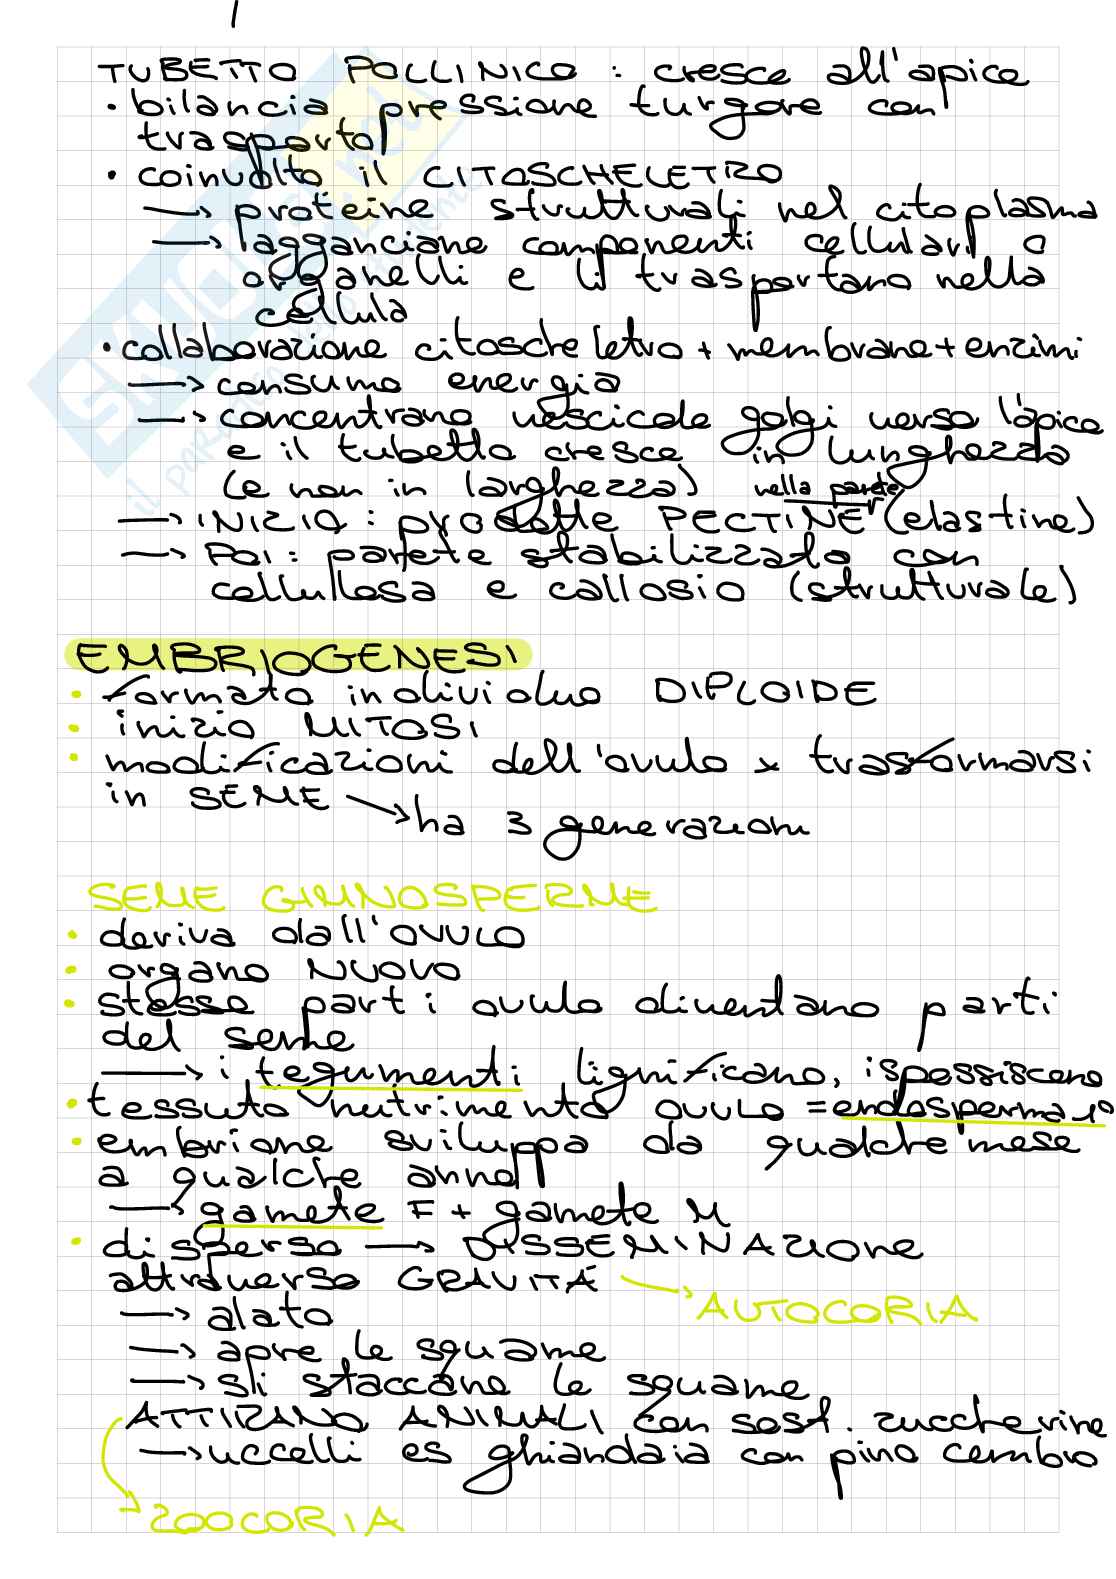 TUBETTO POLLINICO : cresce all'apice
• bilancia pressione turgore con
trasporto
• coinvolto il CITOSCHELETRO
→ proteine strutturali nel citoplasma
→ agganciano componenti cellulari o
organelli e li trasportano nella
cellula
• collaborazione citoscheletro + membrane + enzimi
→ consumo energia
→ concentrano vescicole golgi verso l'apice
e il tubetto cresce in lunghezza
(e non in larghezza) nella parete
→ INIZIO : prodotte PECTINE (elastine)
→ POI : parete stabilizzata con
cellulosa e callosio (strutturale)
EMBRIOGENESI
• formato individuo DIPLOIDE
• inizio MITOSI
• modificazioni dell'ovulo x trasformarsi
in SEME → ha 3 generazioni
SEME GIMNOSPERME
• deriva dall'OVULO
• organo NUOVO
• stesse parti ovulo diventano parti
del seme
→ i tegumenti lignificano, ispessiscono
• tessuto nutrimento ovulo = endosperma 1°
• embrione sviluppa da qualche mese
a qualche anno
→ gamete F + gamete M
• disperso → DISSEMINAZIONE
attraverso GRAVITÁ → AUTOCORIA
→ alato
→ apre le squame
→ si staccano le squame
ATTIRANO ANIMALI con sost. zuccherine
→ uccelli es ghiandaia con pino cembro
→ ZOOCORIA